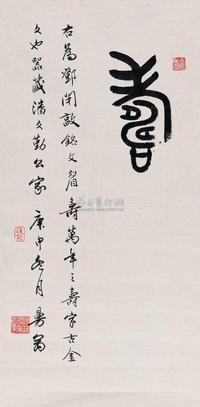 壽
右為鄧閉敦銘文眉壽萬年之壽字古金
文也器藏潘文勤公家庚申冬月